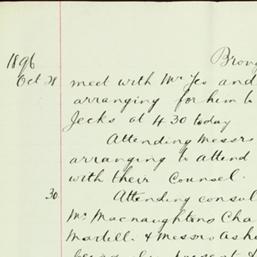 Brong
1896
Oct 28 meet with Mr Jes and
arranging for him to
Jecks at 4 30 today
Attending Messrs
arranging to attend
with their Counsel.
30 Attending consul
Mr Macnaughtons Cha
Martell & Messrs Ashu